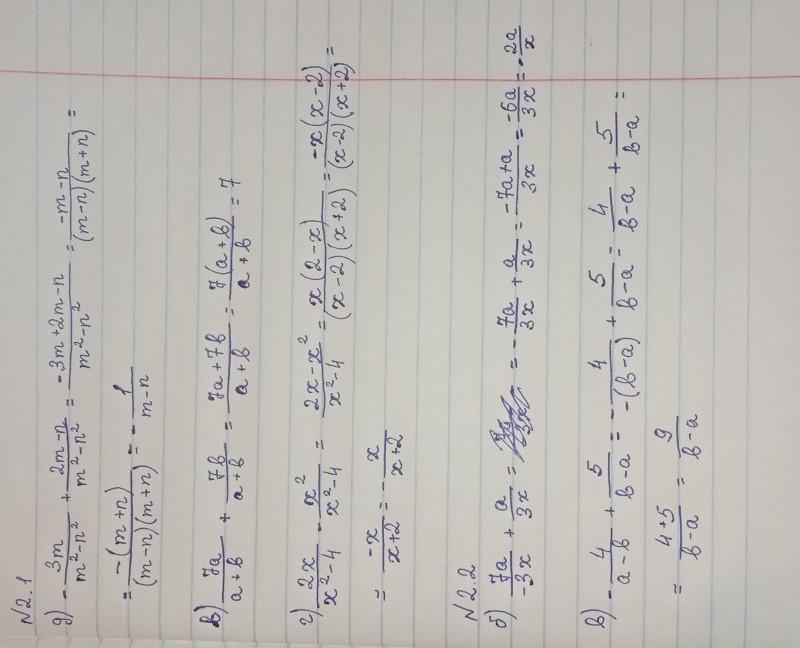 N2.1
д) -3m/(m²-n²) + (2m-n)/(m²-n²) = (-3m+2m-n)/(m²-n²) = (-m-n)/((m-n)(m+n)) =
= (-(m+n))/((m-n)(m+n)) = - 1/(m-n)
в) 7a/(a+b) + 7b/(a+b) = (7a+7b)/(a+b) = 7(a+b)/(a+b) = 7
г) 2x/(x²-4) - x²/(x²-4) = (2x-x²)/(x²-4) = x(2-x)/((x-2)(x+2)) = -x(x-2)/((x-2)(x+2)) =
= -x/(x+2) = - x/(x+2)
N2.2
б) 7a/(-3x) + a/(3x) = = - 7a/(3x) + a/(3x) = (-7a+a)/(3x) = -6a/(3x) = - 2a/x
в) - 4/(a-b) + 5/(b-a) = - 4/(-(b-a)) + 5/(b-a) = 4/(b-a) + 5/(b-a) =
= (4+5)/(b-a) = 9/(b-a)